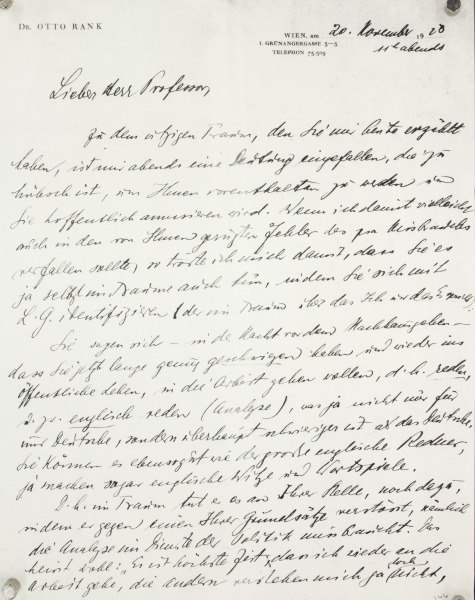 DR. OTTO RANK
WIEN, am 20. November 1923
I. GRÜNANGERGASSE 3–5
TELEPHON 75-5-29
11h abends
Lieber Herr Professor,
Zu dem witzigen Traum, den Sie mir heute erzählt
haben, ist mir abends eine Deutung eingefallen, die zu
hübsch ist, um Ihnen vorenthalten zu werden und
Sie hoffentlich amusieren wird. Wenn ich damit vielleicht
auch in den von Ihnen gerügten Fehler des Missbrauches
verfallen sollte, so tröste ich mich damit, dass Sie es
ja selbst im Traume auch tun, indem Sie sich mit
L. G. identifizieren (der im Traum über das Ich und das Es
Sie sagen sich – in der Nacht vor dem Nachhausgehen –
dass Sie jetzt lange genug geschwiegen haben und wieder ins
öffentliche Leben, in die Arbeit gehen wollen, d. h. reden,
u. zw. englische reden (Analyse), was ja nicht nur für
uns Deutsche, sondern überhaupt schwieriger ist als das Deutsche.
Sie können es ebensogut wie der grosse englische Redner,
ja machen sogar englische Witze und Wortspiele.
D. h. im Traum tut er es an Ihrer Stelle, noch dazu,
indem er gegen einen Ihrer Grundsätze verstösst, nämlich
die Analyse im Dienste der Politik missbraucht. Das
heisst wohl: „Es ist höchste Zeit, dass ich wieder an die
Arbeit gehe, die andern verstehen mich ja doch nicht,